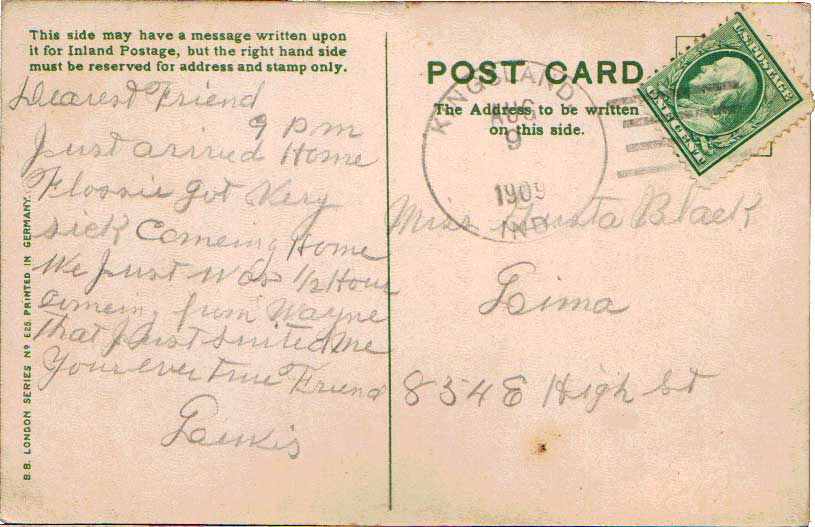 This side may have a message written upon
it for Inland Postage, but the right hand side
must be reserved for address and stamp only.
Dearest Friend
9 Pm
Just arrived Home
Flossie got Very
sick Comeing Home
We Just Was 1/2 Hour
Comeing from Wayne
That Just Suited Me
Your ever true Friend
Lewis
B.B. LONDON SERIES Nº E25. PRINTED IN GERMANY.
POST CARD
The Address to be written
on this side.
KINGSLAND
AUG
9
1909
IND
U.S. POSTAGE
ONE CENT
Miss Gusta Black
Lima
854 E High St